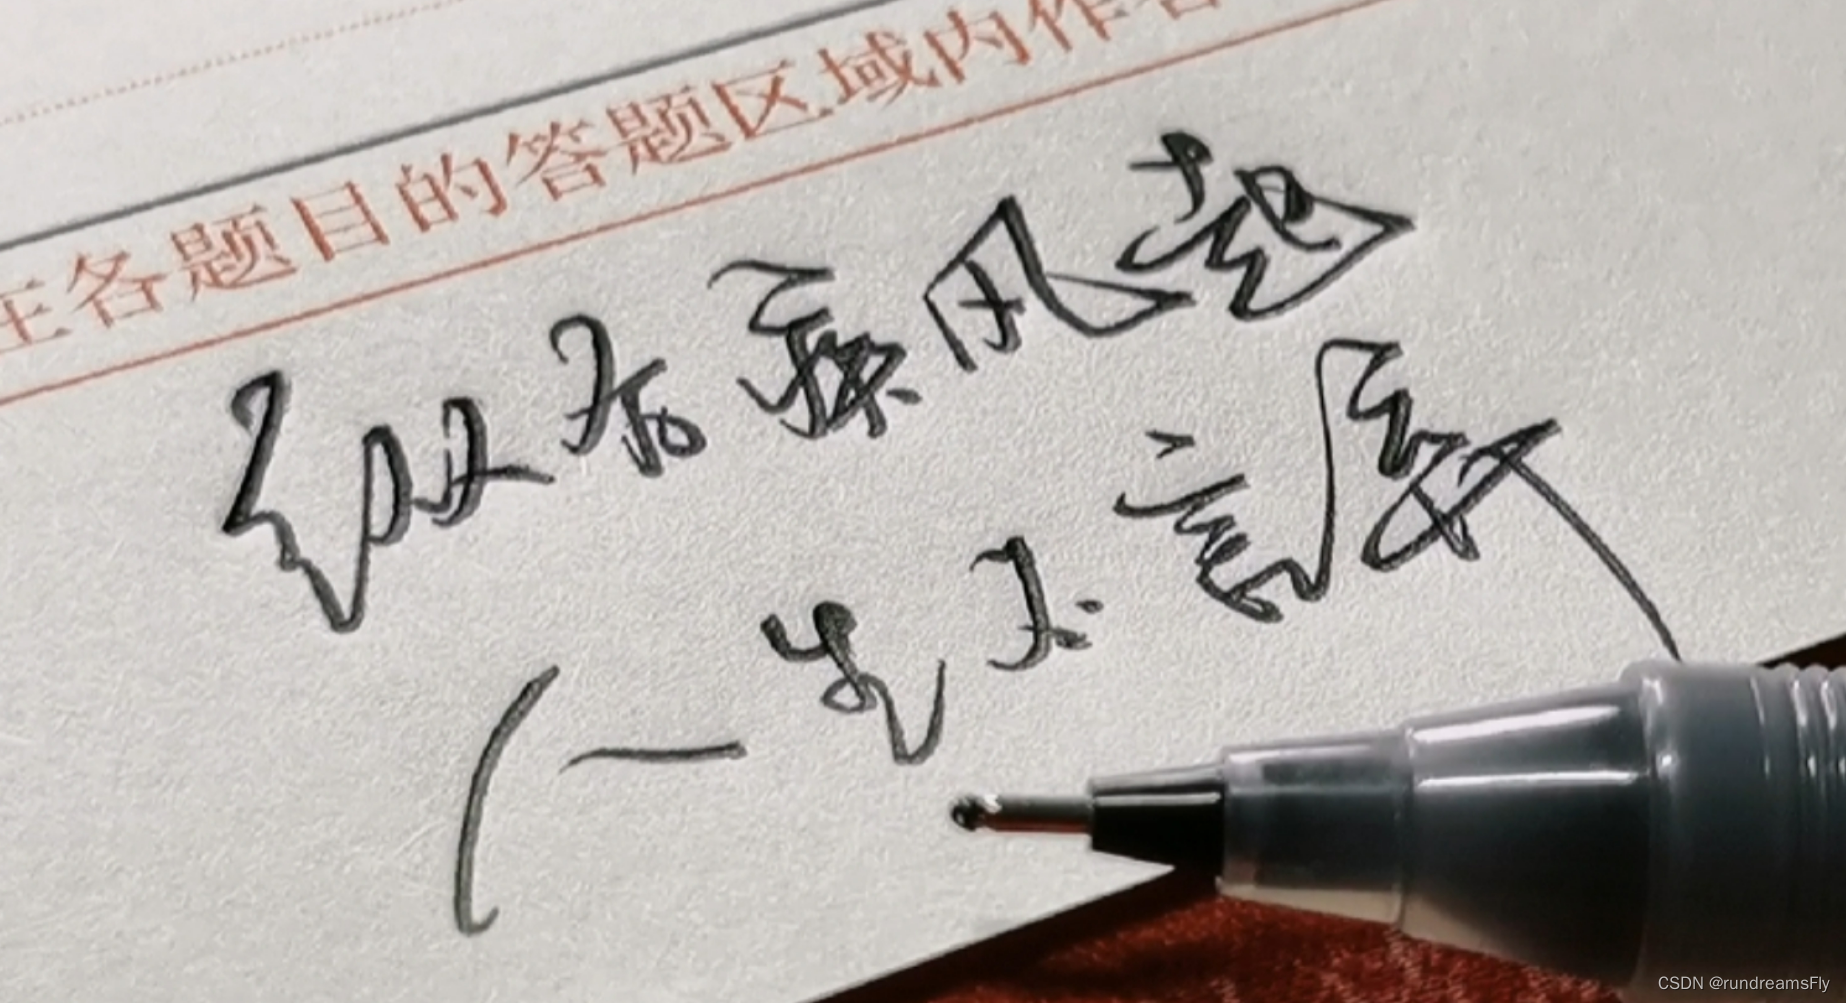 在各题目的答题区域内作答
纵有疾风起
人生不言弃
CSDN @rundreamsFly